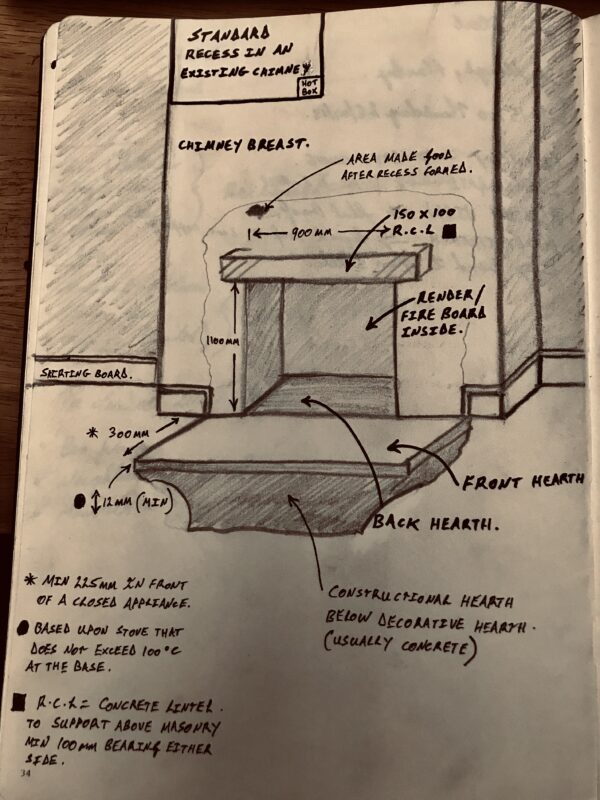 STANDARD
RECESS IN AN
EXISTING CHIMNEY
HOT
BOX
CHIMNEY BREAST.
AREA MADE GOOD
AFTER RECESS FORMED.
150 X 100
900 MM
R.C.L
RENDER/
FIRE BOARD
INSIDE.
1100MM
SKIRTING BOARD.
* 300MM
12MM (MIN)
FRONT HEARTH
BACK HEARTH.
CONSTRUCTIONAL HEARTH
BELOW DECORATIVE HEARTH.
(USUALLY CONCRETE)
* MIN 225MM IN FRONT
OF A CLOSED APPLIANCE.
BASED UPON STOVE THAT
DOES NOT EXCEED 100°C
AT THE BASE.
R.C.L = CONCRETE LINTEL.
TO SUPPORT ABOVE MASONRY
MIN 100MM BEARING EITHER
SIDE.
34